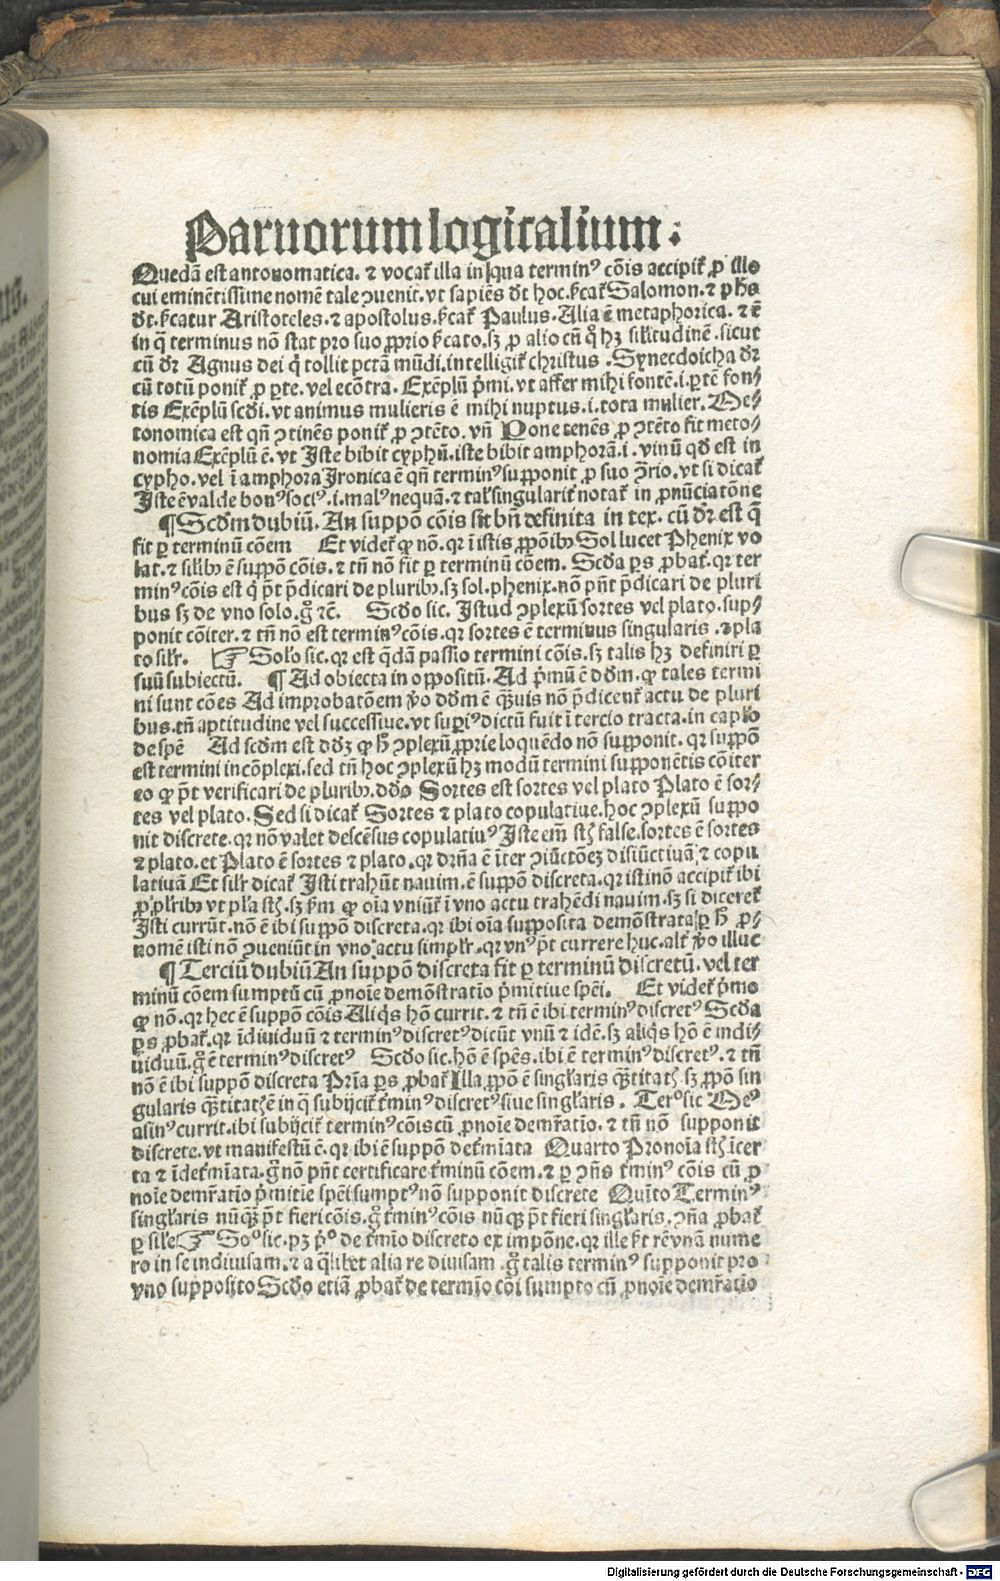 Paruorum logicalium.
Quedā est antonomatica. ⁊ vocat̄ illa in qua terminꝰ cōis accipit̄ ꝓ illo
cui eminētissime nomē tale ꝯuenit. vt sapiēs d̄t hoc. ẜcat̄ Salomon. ⁊ ph̄s
d̄t. ẜcatur Aristoteles. ⁊ apostolus. ẜcat̄ Paulus. Alia ē metaphorica. ⁊ ē
in q̄ terminus nō stat pro suo ꝓprio ẜcato. sꝫ ꝓ alio cū q̊ hꝫ sil̄itudinē. sicut
cū d̄r Agnus dei q̇ tollit pctā mūdi. intelligit̄ christus. Synecdoicha d̄r
cū totū ponit̄ ꝓ ꝑte. vel ecōtra. Exēplū p̄mi. vt affer mihi fontē. i. ꝑtē fon⸗
tis Exēplū scd̄i. vt animus mulieris ē mihi nuptus. i. tota mulier. Me⸗
tonomica est qn̄ ꝯtinēs ponit̄ ꝓ ꝯtēto. vn̄ Pone tenēs ꝓ ꝯtēto fit meto⸗
nomia Exēplū ē. vt Iste bibit cyphū. iste bibit amphorā. i. vinū qd̄ est in
cypho. vel ī amphora Ironica ē qn̄ terminꝰ supponit ꝓ suo ꝯ̄rio. vt si dicat̄
Iste ē valde bonꝰ sociꝰ. i. malꝰ nequā. ⁊ tal̄ singularit̄ notat̄ in ꝓnūciatōne
¶ Scd̄m dubiū. An suppō cōis sit bn̄ definita in tex. cū d̄r est q̄
fit ꝑ terminū cōem Et videt̄ ꝙ nō. qr̄ ī istis ꝓpōibꝫ Sol lucet Phenix vo
lat. ⁊ sil̄ibꝫ ē suppō cōis. ⁊ tn̄ nō fit ꝑ terminū cōem. Scd̄a ꝑs ꝓbat̄. qr̄ ter
minꝰ cōis est q̇ p̄t p̄dicari de pluribꝫ. sꝫ sol. phenix. nō pn̄t p̄dicari de pluri
bus sꝫ de vno solo. g̊ ⁊c̄. Scd̄o sic. Istud ꝯplexū sortes vel plato. sup⸗
ponit cōiter. ⁊ tn̄ nō est terminꝰ cōis. qr̄ sortes ē terminus singularis. ⁊ pla
to sil̄r. ☞ Sol̄o sic. qr̄ est q̄dā passio termini cōis. sꝫ talis hꝫ definiri ꝑ
suū subiectū. ¶ Ad obiecta in oppositū. Ad p̄mū ē dd̄m. ꝙ tales termi
ni sunt cōes Ad improbatōem v̊o dd̄m ē q̄uis nō p̄dicent̄ actu de pluri
bus. tn̄ aptitudine vel successiue. vt supriꝰ dictū fuit ī tercio tracta. in capl̄o
de spē Ad scd̄m est dd̄ꝫ ꝙ h̄ ꝯplexū ꝓprie loquēdo nō supponit. qr̄ suppō
est termini incōplexi. sed tn̄ hoc ꝯplexū hꝫ modū termini supponētis cōiter
eo ꝙ p̄t verificari de pluribꝫ. dd̄o Sortes est sortes vel plato Plato ē sor⸗
tes vel plato. Sed si dicat̄ Sortes ⁊ plato copulatiue. hoc ꝯplexū suppo
nit discrete. qr̄ nō valet descēsus copulatiuꝰ Iste em̄ st̄ false. sortes ē sortes
⁊ plato. et Plato ē sortes ⁊ plato. qr̄ dr̄na ē īter ꝯiūctōeꝫ disiūctiuā ⁊ copu
latiuā Et sil̄r dicat̄ Isti trahūt nauim. ē suppō discreta. qr̄ isti nō accipit̄ ibi
ꝓ pl̄ribꝫ vt pl̄a st̄. sꝫ ẜm ꝙ oīa vniūt̄ ī vno actu trahēdi nauim. sꝫ si diceret̄
Isti currūt. nō ē ibi suppō discreta. qr̄ ibi oīa supposita demōstrata ꝑ h̄ ꝓ⸗
nomē isti nō ꝯueniūt in vno actu simpl̄r. qr̄ vnꝰ p̄t currere huc. alt̄ v̊o illuc
¶ Terciū dubiū An suppō discreta fit ꝑ terminū discretū. vel ter
minū cōem sumptū cū ꝓnoīe demōstratīo p̄mitiue spēi. Et videt̄ p̄mo
ꝙ nō. qr̄ hec ē suppō cōis Aliq̇s hō currit. ⁊ tn̄ ē ibi terminꝰ discretꝰ Scd̄a
ꝑs ꝓbat̄. qr̄ īdiuiduū ⁊ terminꝰ discretꝰ dicūt vnū ⁊ idē. sꝫ aliq̇s hō ē indi⸗
uiduū. g̊ ē terminꝰ discretꝰ Scd̄o sic. hō ē spēs. ibi ē terminꝰ discretꝰ. ⁊ tn̄
nō ē ibi suppō discreta Pr̄ia ꝑs ꝓbat̄ Illa ꝓpō ē singl̄aris q̄titatꝭ. sꝫ ꝓpō sin
gularis q̄titatꝭ ē in q̄ subijcit̄ t̄minꝰ discretꝰ siue singl̄aris. Terᵒ sic Meꝰ
asinꝰ currit. ibi subijcit̄ terminꝰ cōis cū ꝓnoīe demr̄atīo. ⁊ tn̄ nō supponit
discrete. vt manifestū ē. qr̄ ibi ē suppō det̄mīata Quarto Pronoīa st̄ īcer
ta ⁊ īdet̄mīata. g̊ nō pn̄t certificare t̄minū cōem. ⁊ ꝑ ꝯn̄s t̄minꝰ cōis cū ꝓ
noīe demr̄atīo p̄mitīe spēi sumptꝰ nō supponit discrete Quīto Terminꝰ
singl̄aris nūq̄ p̄t fieri cōis. g̊ t̄minꝰ cōis nūq̄ p̄t fieri singl̄aris. ꝯn̄a ꝓbat̄
ꝑ sil̄e ☞ Soᵒ sic. pꝫ p̊ de t̄mīo discreto ex impōne. qr̄ ille ẜt rē vnā nume
ro in se indiuisam. ⁊ a q̄libet alia re diuisam. g̊ talis terminꝰ supponit pro
vno supposito Scd̄o etiā ꝓbat̄ de termīo cōi sumpto cū ꝓnoīe demr̄atīo
Digitalisierung gefördert durch die Deutsche Forschungsgemeinschaft - DFG